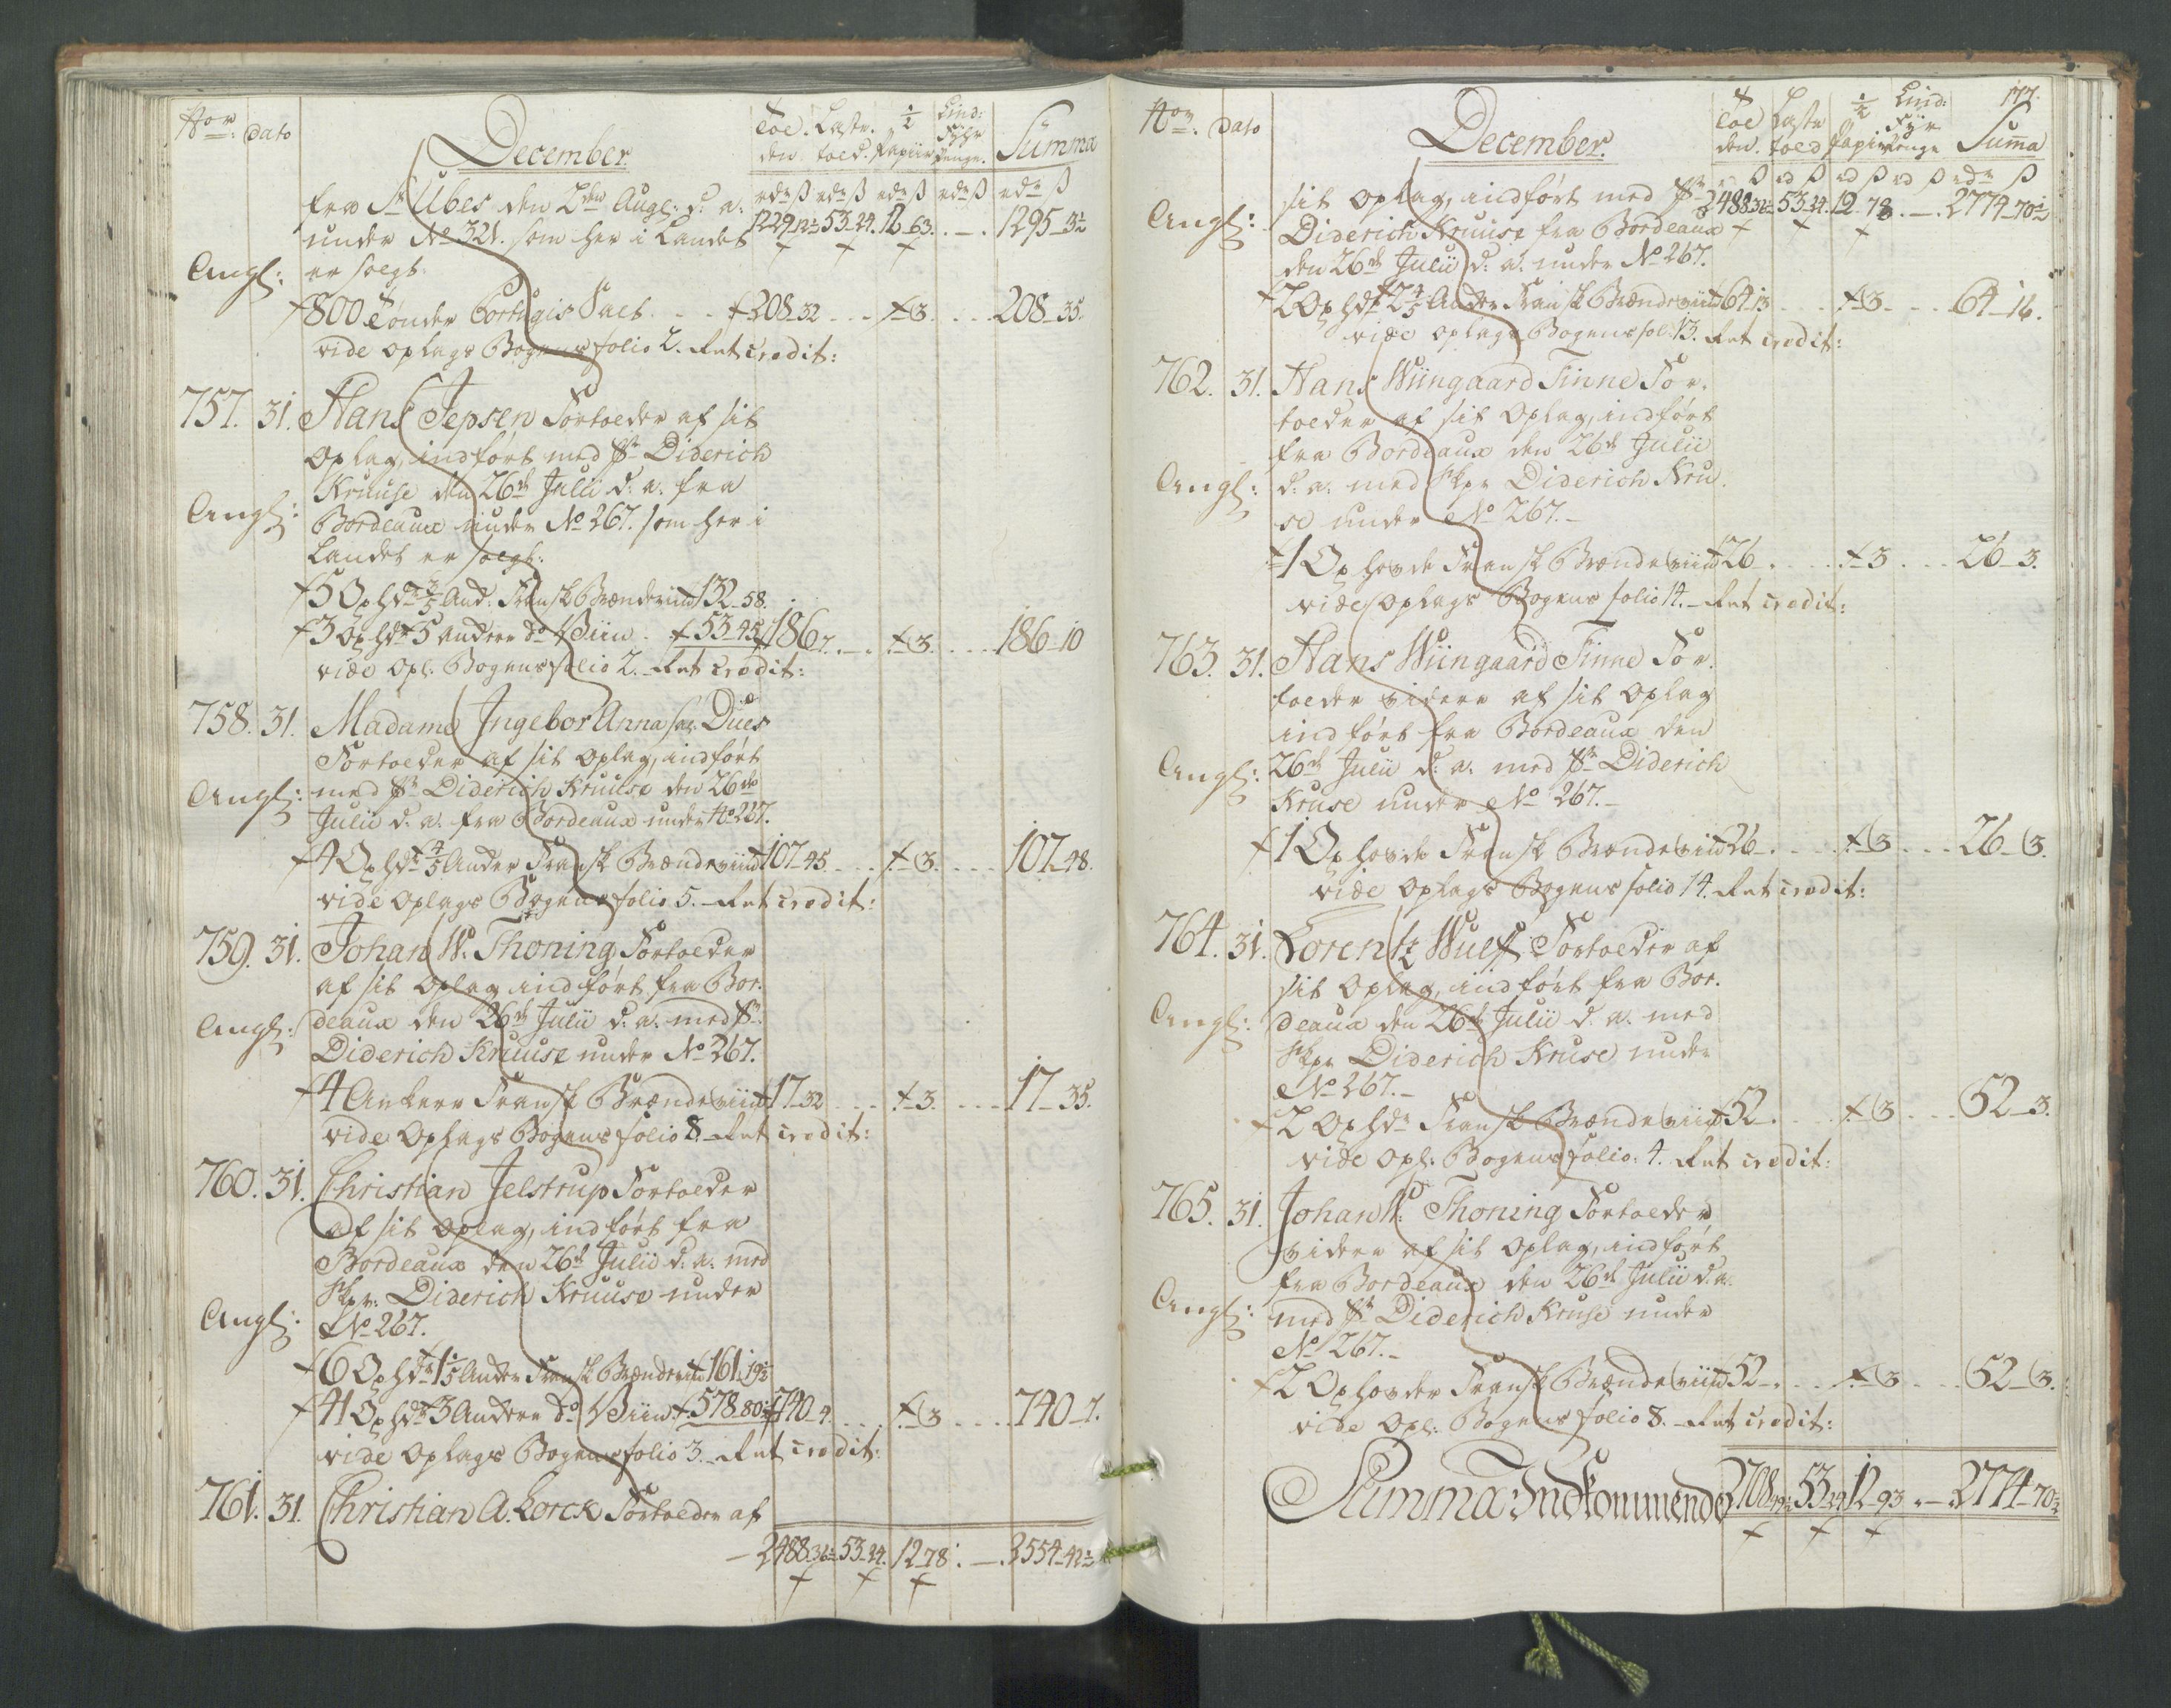 Nor: Dato
December
Toe Lastr. 1/2 Lind:
den told. Papiir Fyhr Penge. Summa
rdr ß rdr ß rdr ß rdr ß rdr ß
fra St Ubes den 2den Aug: d: a: 1229 12½ 53-24. 12-63. - 1295-3½
under No 321. som her i Landet
Angl: er solgt.
800 Tönder Portugis Salt. 208-32 - 3. 208-35.
vide Oplags Bogens folio 2. Ret credit:
757. 31. Hans Jepsen Fortolder af sit
Oplag, indført med Skr Diderich
Kruuse den 26de Julii d: a. fra
Angl: Bordeaux under No 267. som her i
Landet er solgt:
5 Oxhdr 3/5 And. Fransk Brændeviin 132-58.
3 Oxhdr 5 Andere do Viin. 53-45 186.7. - 3. 186-10
vide Opl. Bogens folio 2. Ret credit:
758. 31. Madame Ingebor Anna sal. Dües
Fortolder af sit Oplag, indført
Angl: med Skr Diderich Kruuse den 26de
Julii d. a. fra Bordeaux under No 267.
4 Oxhdr 4/5 Ander Fransk Brændeviin 107-45. - 3. 107-48.
vide Oplags Bogens folio 5. Ret credit:
759. 31. Johan W. Thoning Fortolder
af sit Oplag indført fra Bor.
Angl: deaux den 26de Julii d: a. med Skr
Diderich Kruuse under No 267.
4 Ankere Fransk Brændeviin 17-32 - 3. 17-35.
vide Oplags Bogens folio 8. Ret credit:
760. 31. Christian Jelstrup Fortolder
af sit Oplag, indført fra
Bordeaux den 26de Julii d: a. med
Skpr: Diderich Kruuse under
Angl: No 267.
6 Oxhdr 1 1/5 Ander Fransk Brændeviin 161.19½
41 Oxhdr 3 Andere do Viin 578-80½ 740-4. - 3 740-7.
vide Oplags Bogens folio 3. Ret credit:
761. 31. Christian A. Lorck Fortolder af
2488.36½ 53-24. 12-78. - 2554-42½
177.
Nor: Dato
December.
Toe Lastr 1/2 Lind:
den. told Papir Fyr Penge Summa
rd ß rd ß rd ß rd ß rdr ß
sit Oplag, indført med Skr 2488.36½ 53-24. 12-78. - 2774-70½
Angl: Diderich Kruuse fra Bordeaux
den 26de Julii d: a. under No 267.
2 Oxhdr 2 4/5 Ander Fransk Brændeviin 64.13 - 3. 64-16.
vide Oplags Bogens fol. 13. Ret credit:
762. 31. Hans Wiingaard Finne For.
tolder af sit Oplag, indført
fra Bordeaux den 26de Julii
Angl: d: a. med Skpr Diderich Kru.
se under No 267.
1 Oxhovde Fransk Brændeviin 26. - 3 26-3.
vide Oplags Bogens folio 14. Ret credit:
763. 31. Hans Wiingaard Finne For.
tolder videre af sit Oplag
indført fra Bordeaux den
Angl: 26de Julii d: a. med Skr Diderich
Kruse under No 267.
1 Oxhovde Fransk Brændeviin 26. - 3 26-3.
vide Oplags Bogens folio 14. Ret credit:
764. 31. Lorentz Wulf Fortolder af
sit Oplag, indført fra Bor.
Angl: deaux den 26de Julii d. a. med
Skpr Diderich Kruse under
No 267.
2 Oxhdr Fransk Brændeviin 52. - 3 52-3.
vide Opl: Bogens folio: 4. Ret credit:
765. 31. Johan W: Thoning Fortolder
videre af sit Oplag, indført
fra Bordeaux den 26de Julii d. a.
Angl: med Skr Diderich Kruse under
No 267.
2 Oxhovder Fransk Brændeviin 52. - 3 52-3.
vide Opl: Bogens folio 8. Ret credit:
Summa Indkommende 2708.49½ 53.24 12-93. - 2774-70½